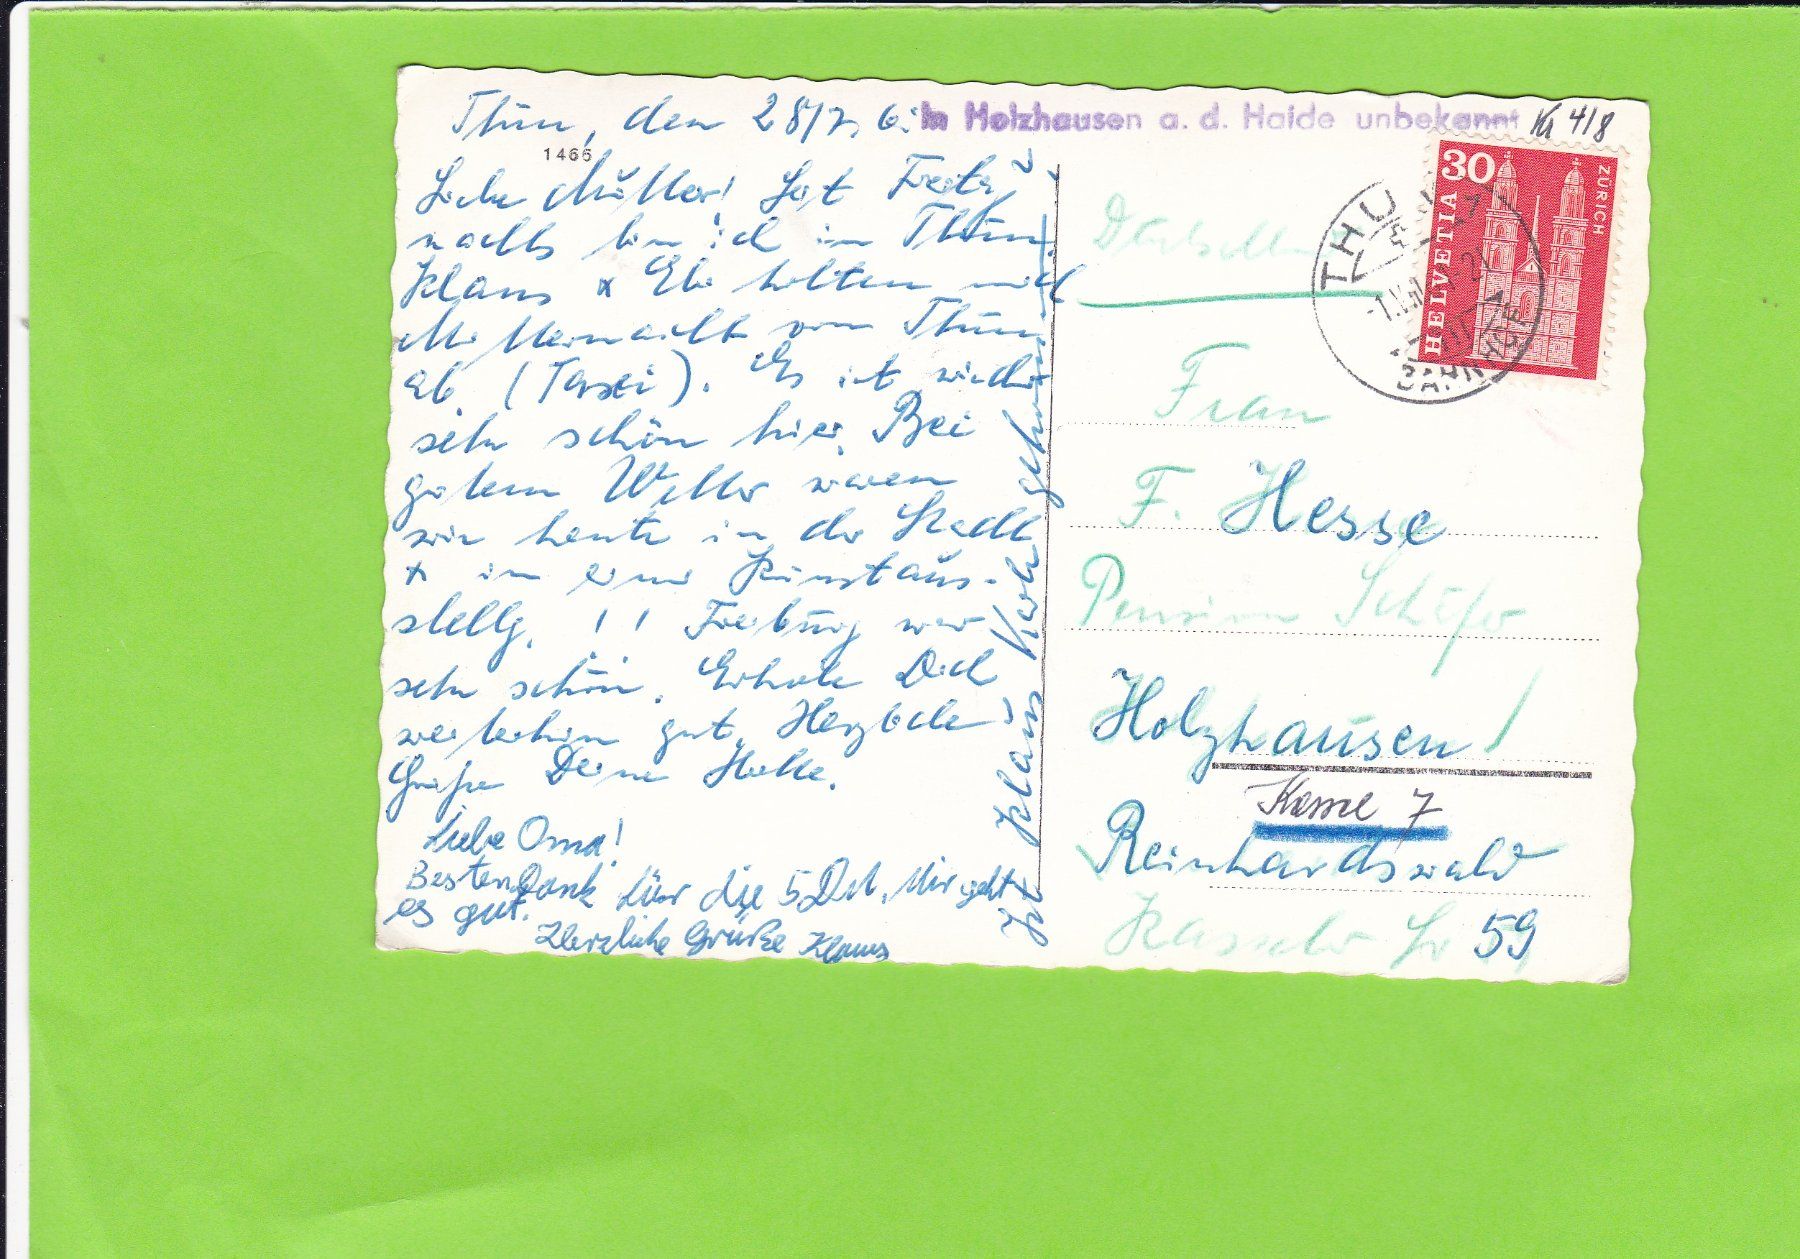 Thun, den 28/7. 6
In Holzhausen a. d. Haide unbekannt
Kr 4/8
1466
Liebe Mutter! Seit Freitag
nachts bin ich in Thun.
Klaus + Ebi holten mich
Mitternacht von Thun
ab. (Taxi). Es ist wieder
sehr schön hier. Bei
gutem Wetter waren
wir heute in der Stadt
+ in einer Kunstaus-
stellg. !! Freiburg war
sehr schön. Erhole Dich
weiterhin gut. Herzliche
Grüße Deine Hilde.
Liebe Oma!
Besten Dank für die 5 DM. Mir geht
es gut.
Herzliche Grüße Klaus
Ist Klaus Karte gekommen?
Deutschland
Frau
F. Hesse
Pension Schäfer
Holzhausen!
Kassel 7
Reinhardswald
Kasseler Str 59
30
HELVETIA
ZÜRICH
THUN
BAHNHOF